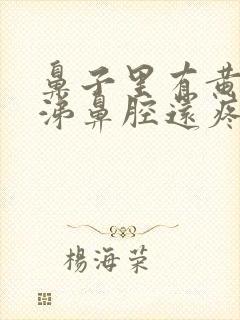 鼻子里有黄
涕鼻腔還疼
楊海荣